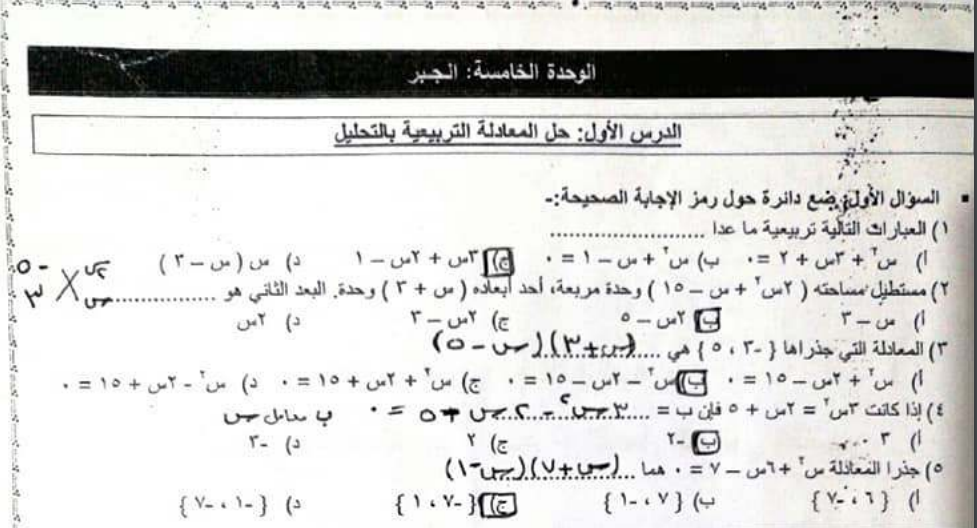 الوحدة الخامسة: الجبر
الدرس الأول: حل المعادلة التربيعية بالتحليل
▪ السؤال الأول: ضع دائرة حول رمز الإجابة الصحيحة:-
١) العبارات التالية تربيعية ما عدا ......................
أ) س٢ + ٣س + ٢ = ٠ ب) س٢ + س – ١ = ٠ ج) ٣س + ٢س – ١ د) س ( س – ٣ )
٢) مستطيل مساحته ( ٢س٢ + س – ١٥ ) وحدة مربعة، أحد أبعاده ( س + ٣ ) وحدة. البعد الثاني هو ................ ٢س س -٥ ٣
أ) س – ٣ ب) ٢س – ٥ ج) ٢س – ٣ د) ٢س
٣) المعادلة التي جذراها { -٣ ، ٥ } هي ..... (س+٣)(س-٥)
أ) س٢ + ٢س – ١٥ = ٠ ب) س٢ – ٢س – ١٥ = ٠ ج) س٢ + ٢س + ١٥ = ٠ د) س٢ - ٢س + ١٥ = ٠
٤) إذا كانت ٣س٢ = ٢س + ٥ فإن ب = ٣س٢ - ٢س + ٥ = ٠ ب معامل س
أ) ٣ ب) -٢ ج) ٢ د) -٣
٥) جذرا المعادلة س٢ + ٦س – ٧ = ٠ هما ... (س+٧)(س-١)
أ) { ٦ ، -٧ } ب) { ٧ ، -١ } ج) { -٧ ، ١ } د) { -١ ، -٧ }